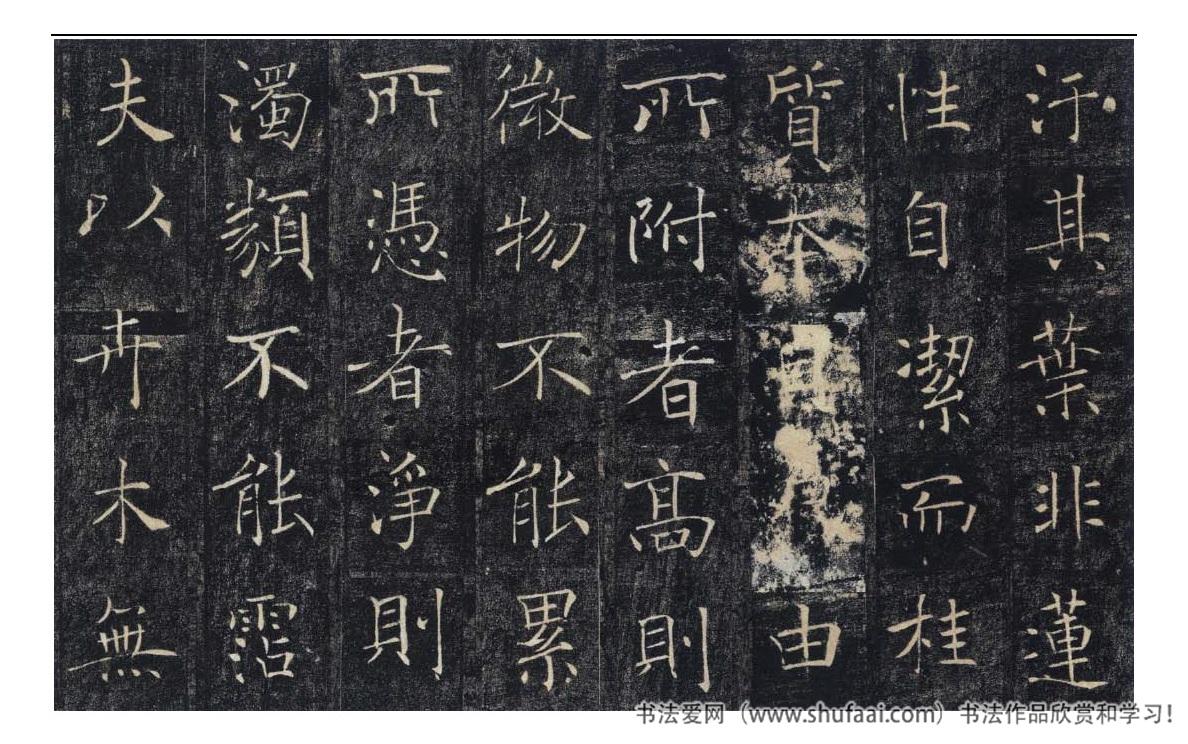 汙其葉非蓮
性自潔而桂
質本由
所附者高則
微物不能累
所憑者淨則
濁類不能霑
夫以卉木無
书法爱网（www.shufaai.com）书法作品欣赏和学习！